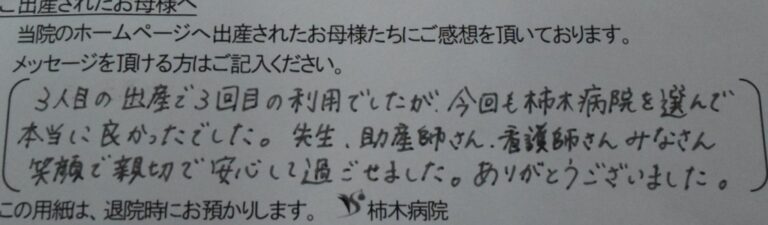 ご出産されたお母様へ
当院のホームページへ出産されたお母様たちにご感想を頂いております。
メッセージを頂ける方はご記入ください。
3人目の出産で3回目の利用でしたが、今回も柿木病院を選んで
本当に良かったでした。先生、助産師さん、看護師さんみなさん
笑顔で親切で安心して過ごせました。ありがとうございました。
この用紙は、退院時にお預かりします。 柿木病院